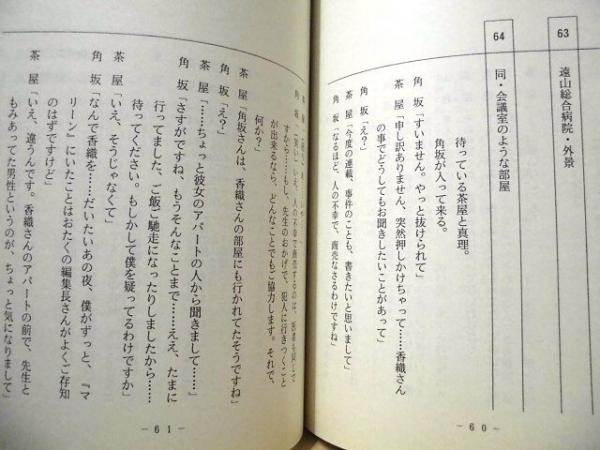 63
遠山総合病院・外景
64
同・会議室のような部屋
待っている茶屋と真理。
角坂が入って来る。
角坂「すいません。やっと抜けられて」
茶屋「申し訳ありません、突然押しかけちゃって……香織さん
の事でどうしてもお聞きしたいことがあって」
角坂「え?」
茶屋「今度の連載、事件のことも、書きたいと思いまして」
角坂「なるほど、人の不幸で、商売なさるわけですね」
－60－
すから……もし、先生のおかげで、犯人に行きつくこと
が出来るなら、どんなことでもご協力します。それで、
何か?」
茶屋「角坂さんは、香織さんの部屋にも行かれてたそうですね」
角坂「え?」
茶屋「……ちょっと彼女のアパートの人から聞きまして……」
角坂「さすがですね、もうそんなことまで……ええ、たまに
行ってました、ご飯ご馳走になったりしましたから……
待ってください。もしかして僕を疑ってるわけですか」
茶屋「いえ、そうじゃなくて」
角坂「なんで香織を……だいたいあの夜、僕がずっと、『マ
リーン』にいたことはおたくの編集長さんがよくご存知
のはずですけど」
茶屋「いえ、違うんです。香織さんのアパートの前で、先生と
もみあってた男性というのが、ちょっと気になりまして」
－61－